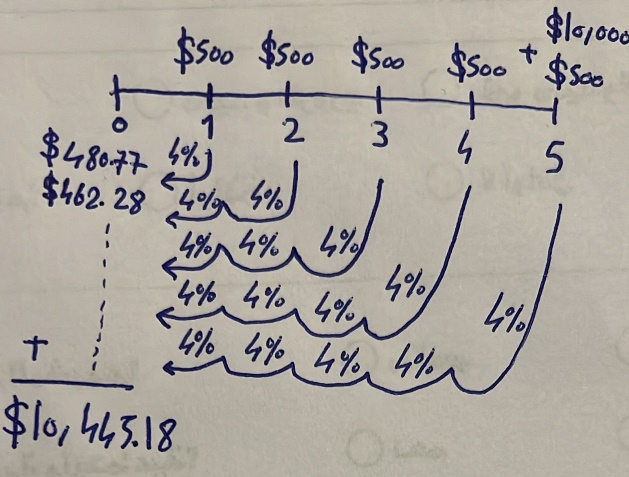 $10,000
$500 $500 $500 $500 + $500
0 1 2 3 4 5
$480.77 4%
$462.28 4% 4%
4% 4% 4%
4% 4% 4% 4%
4% 4% 4% 4% 4%
+
$10,445.18